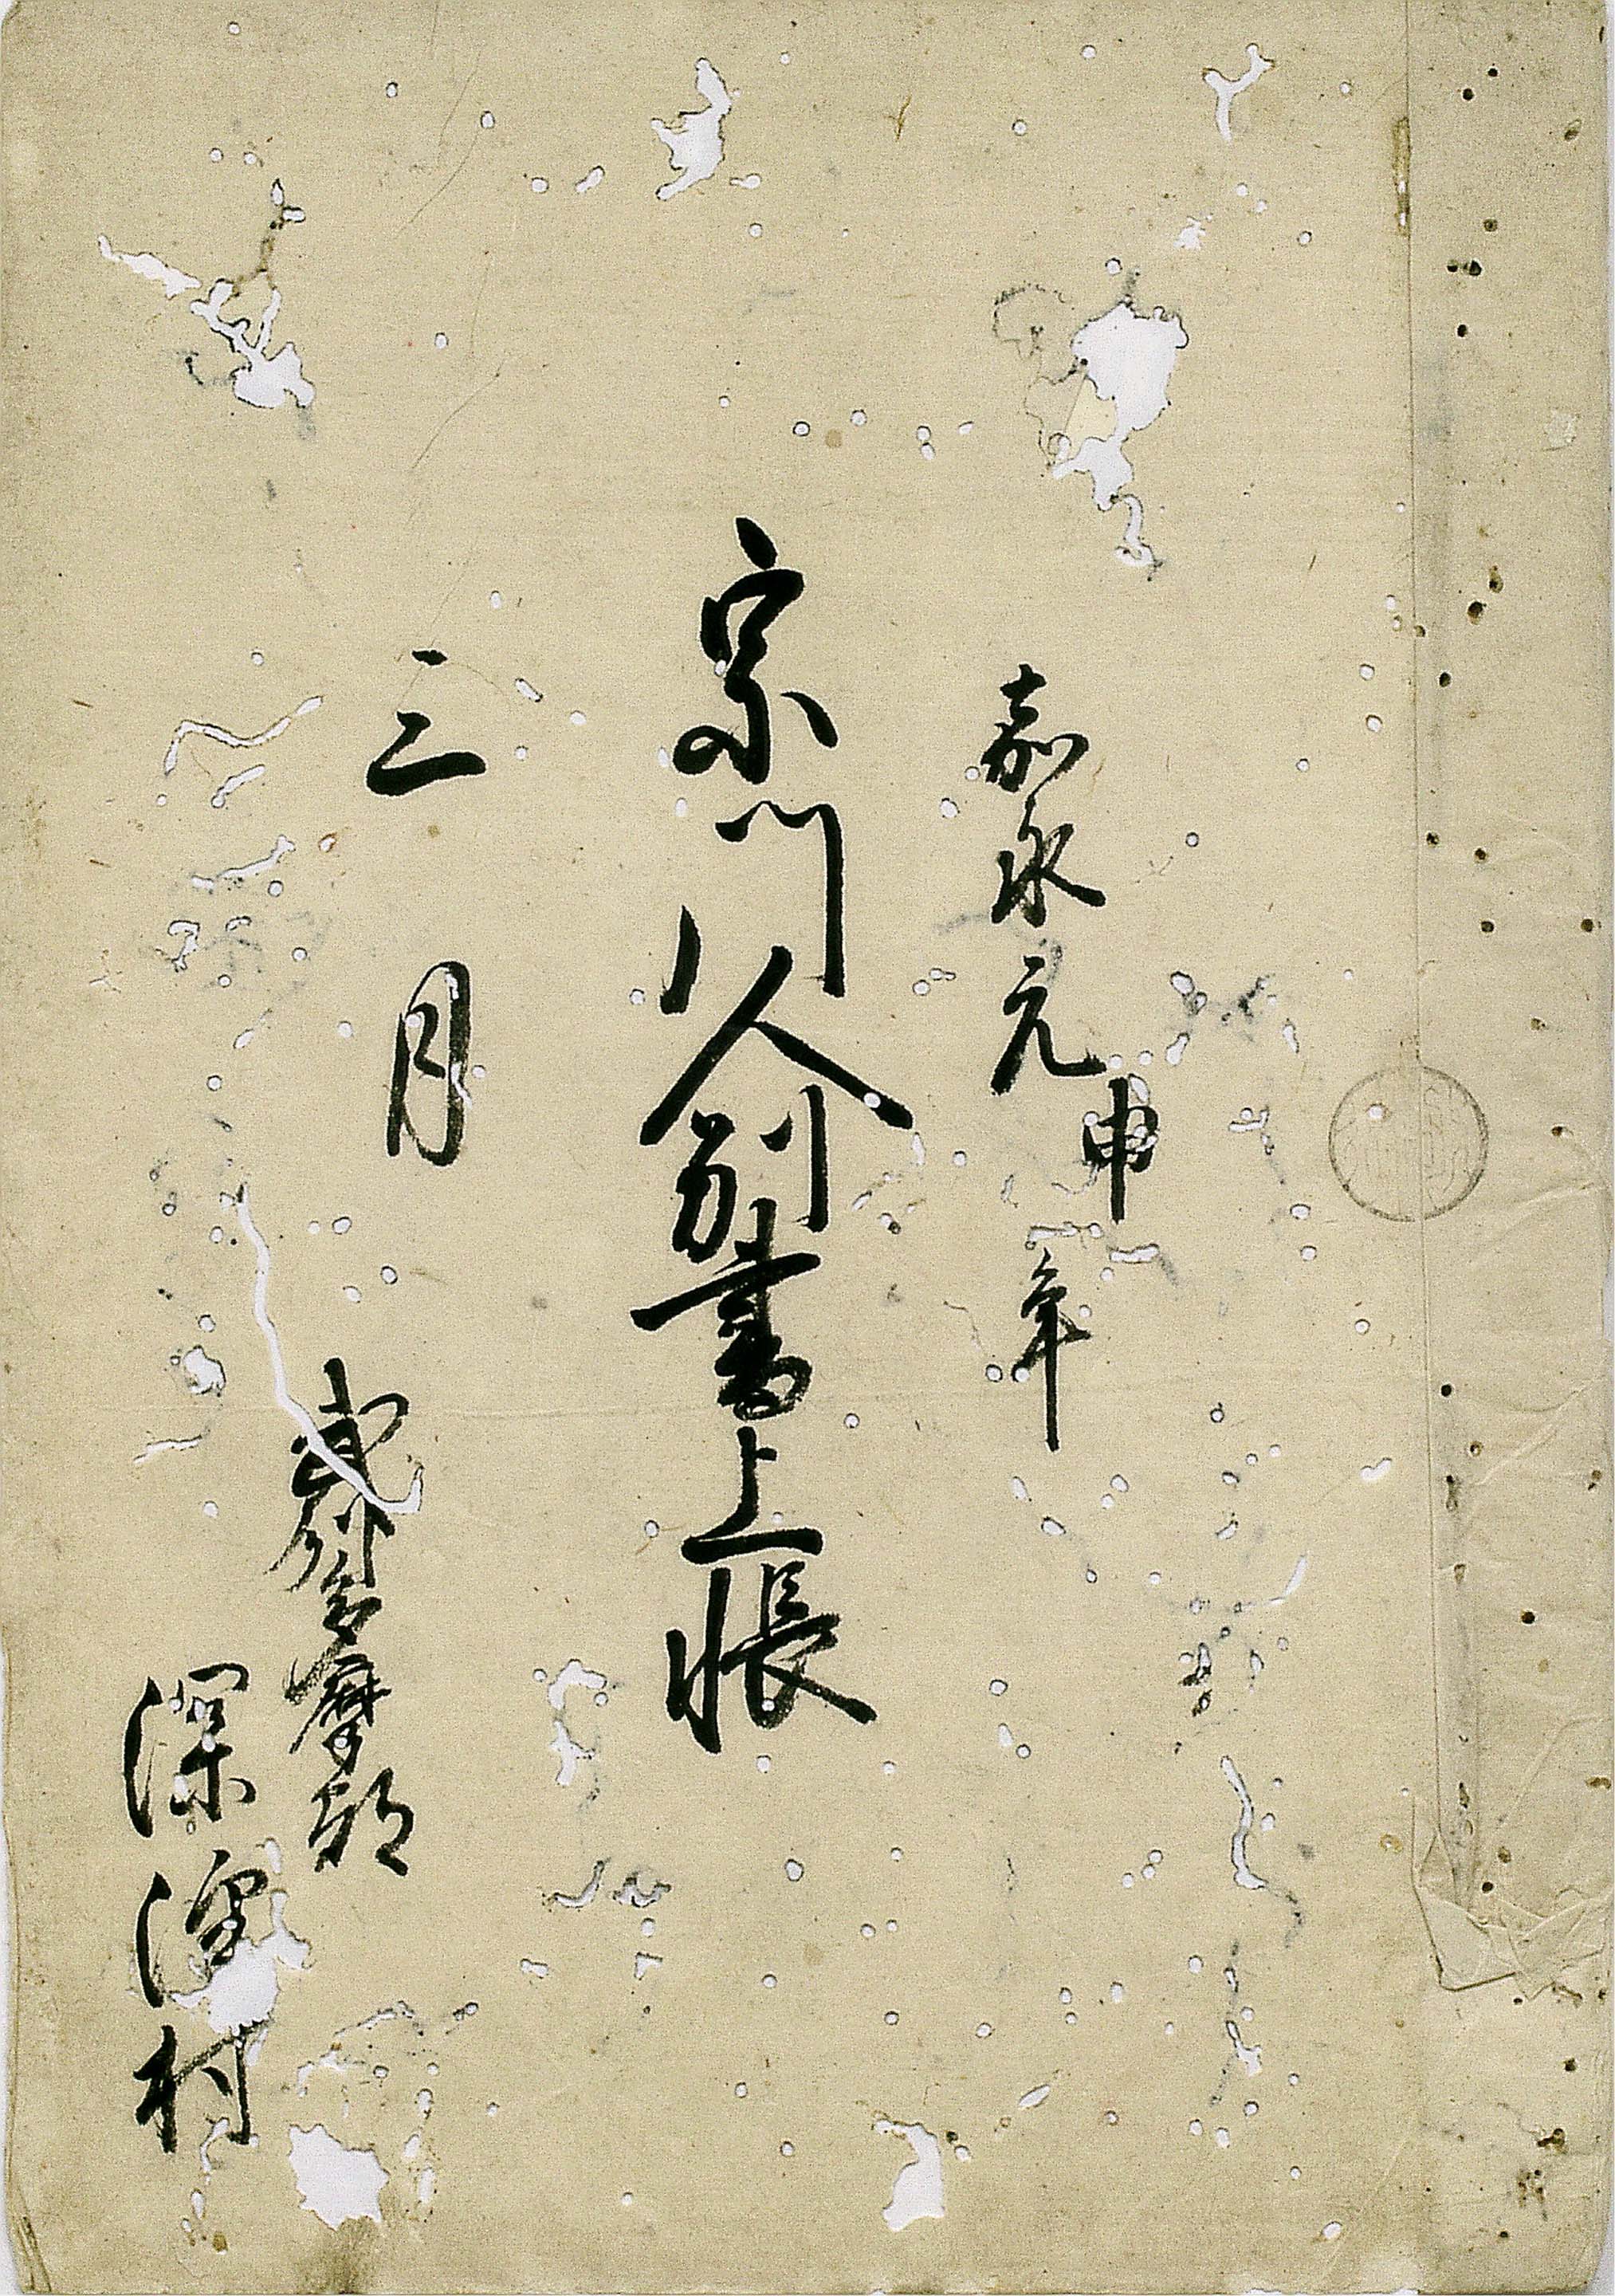 嘉永元申年
宗門人別書上帳
三月
武州多摩郡
深沢村